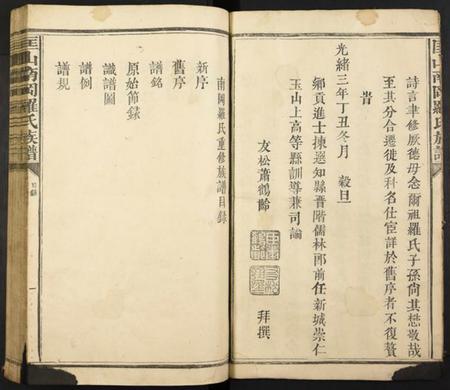 匡山南岡羅氏族譜
詩言聿修厥德毋忝爾祖羅氏子孫尙其懋敬哉
至其分合遷徙及科名仕宦詳於舊序者不復贅
旹
光緒三年丁丑冬月 穀旦
鄉貢進士揀選知縣晋階儒林郎前任新城崇仁
玉山上高等縣訓導兼司諭
友松蕭鶴齡
拜撰
南岡羅氏重修族譜目錄
新序
舊序
譜銘
原始節錄
讖譜圖
譜例
譜規
匡山南岡羅氏族譜
目錄
一